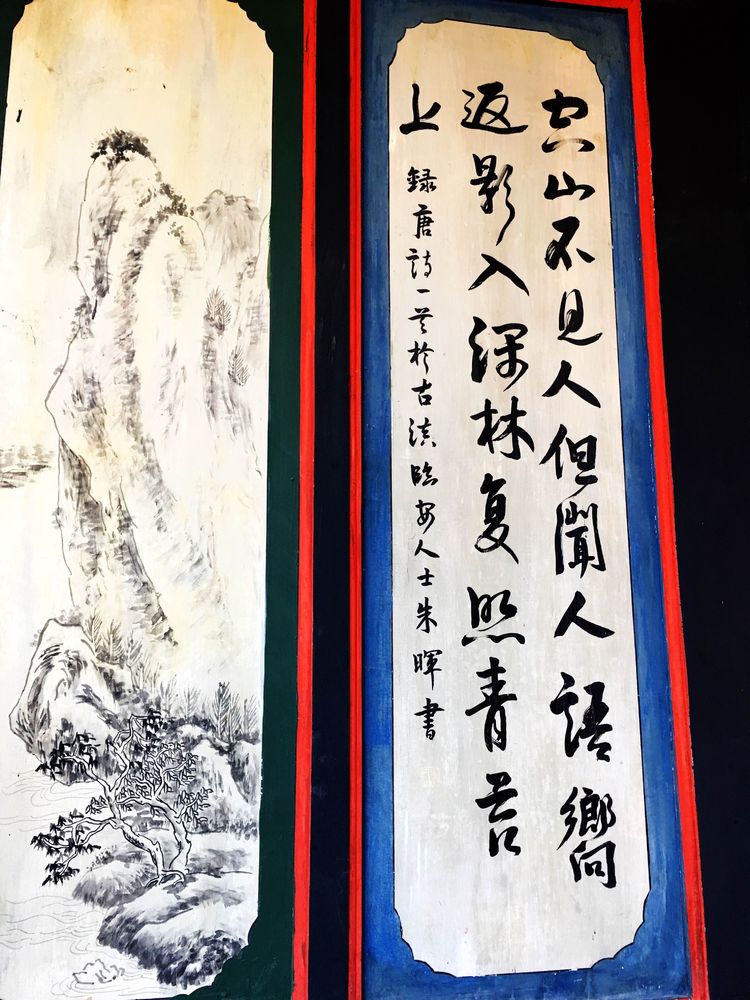 空山不見人但聞人語響
返影入深林复照青苔
上
録唐詩一首於古滇臨安人士朱暉書